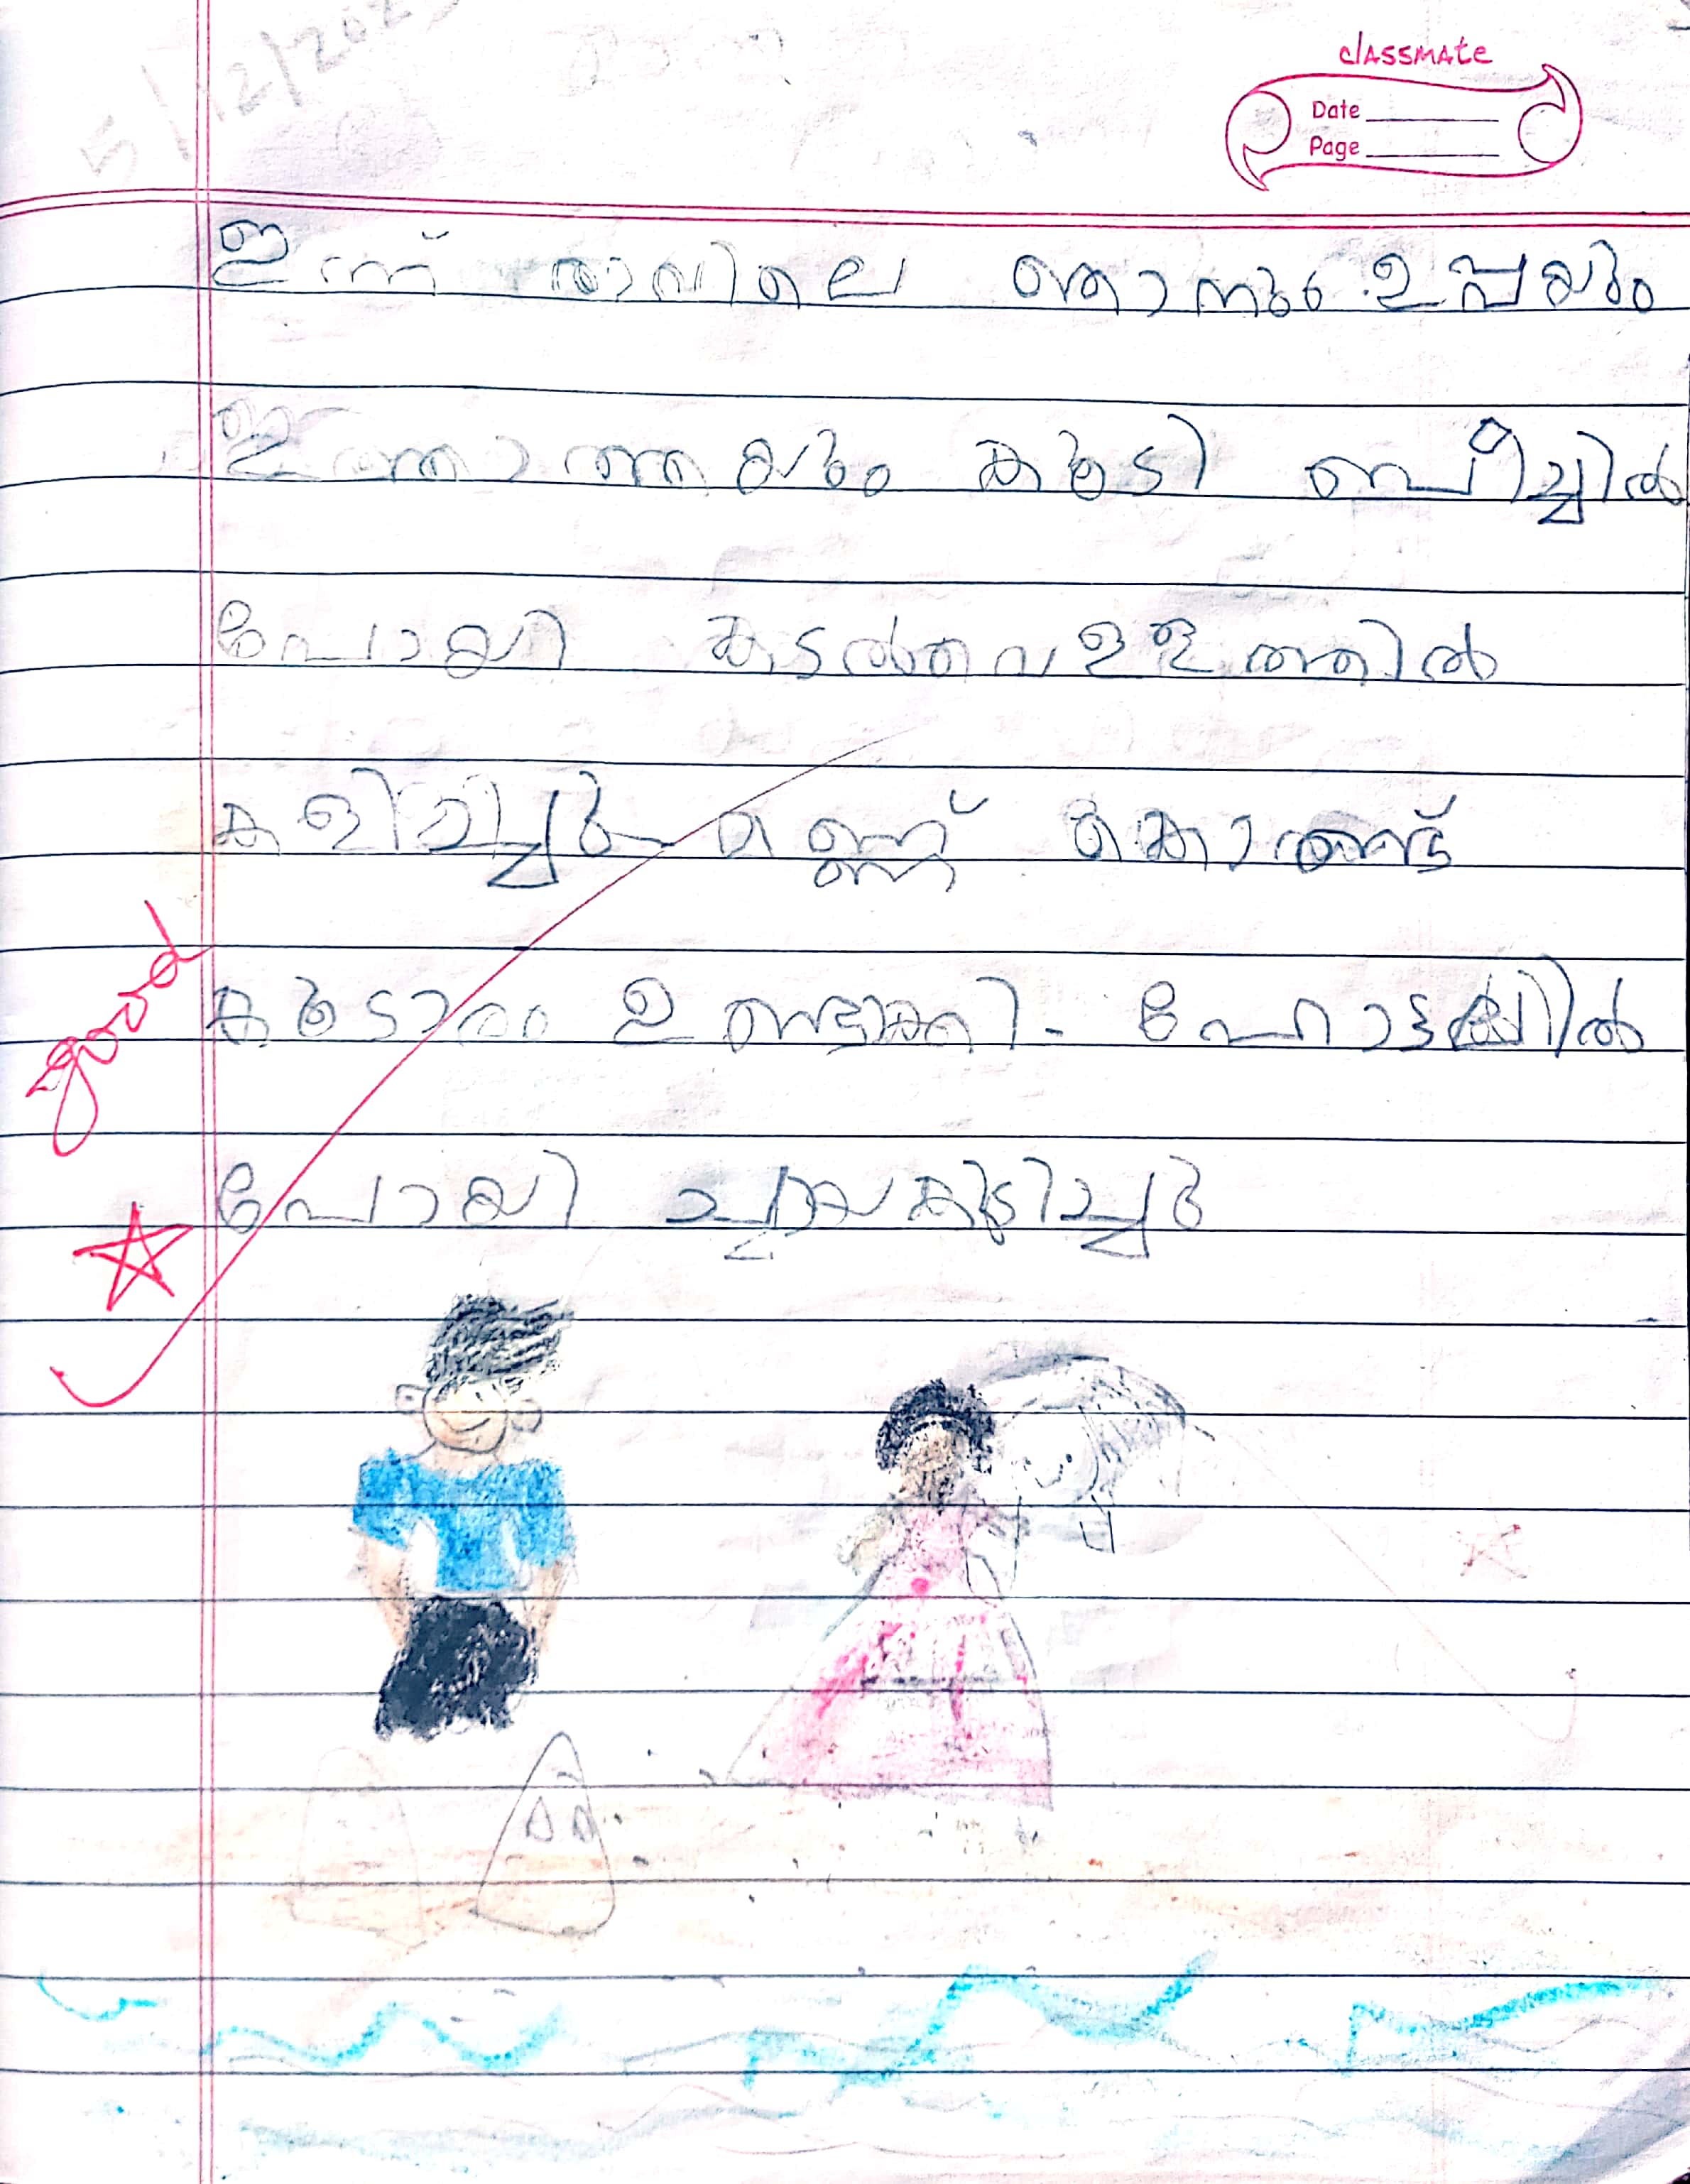 5/12/202
classmate
Date
Page
ഇന്ന് രാവിലെ ഞാനും ഉപ്പയും
ഇത്താത്തയും കൂടി ബീച്ചിൽ
പോയി കടൽവെള്ളത്തിൽ
കളിച്ചു. മണ്ണ് കൊണ്ട്
കൂടാരം ഉണ്ടാക്കി. ഹോട്ടലിൽ
പോയി ചായകുടിച്ചു
good